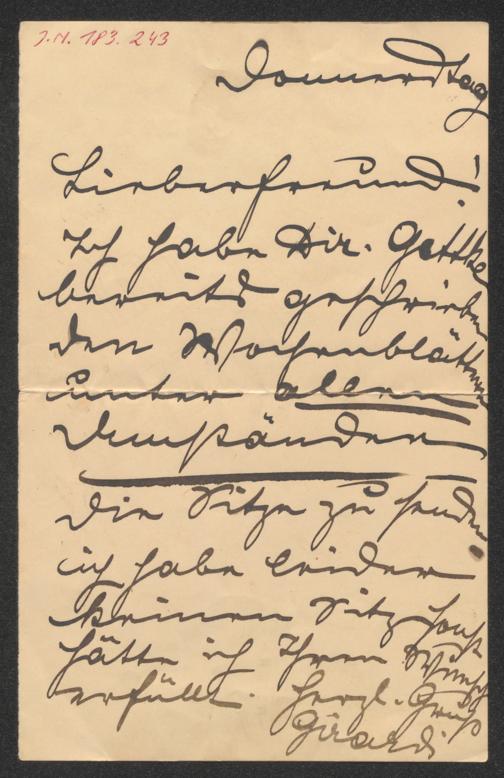 J.N. 183.243
Donnerstag
Lieber Freund!
Ich habe Dir. Gettke
bereits geschrieben
den Wochenblättern
unter allen
Umständen
die Sitze zu senden.
ich habe leider
keinen Sitz sonst
hätte ich Ihren Wunsch
erfüllt. Herzl. Gruß
Girardi